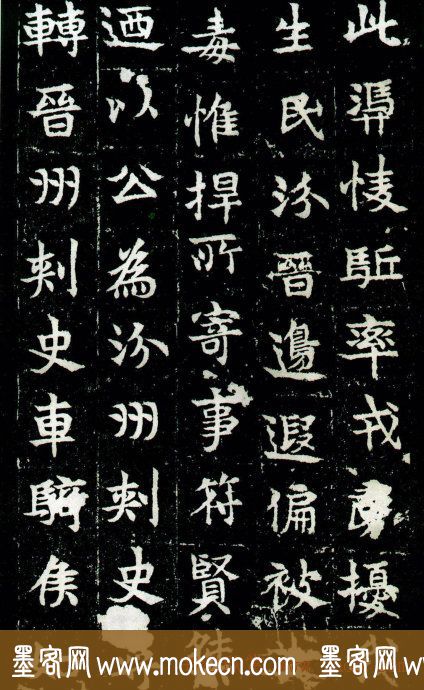 此馮㥄駈率戎擾
生民汾晉邊遐偏被
毒惟捍所寄事符賢
迺以公為汾州刾史
轉晉州刾史車騎侯
墨客网 www.mokecn.com 墨客网